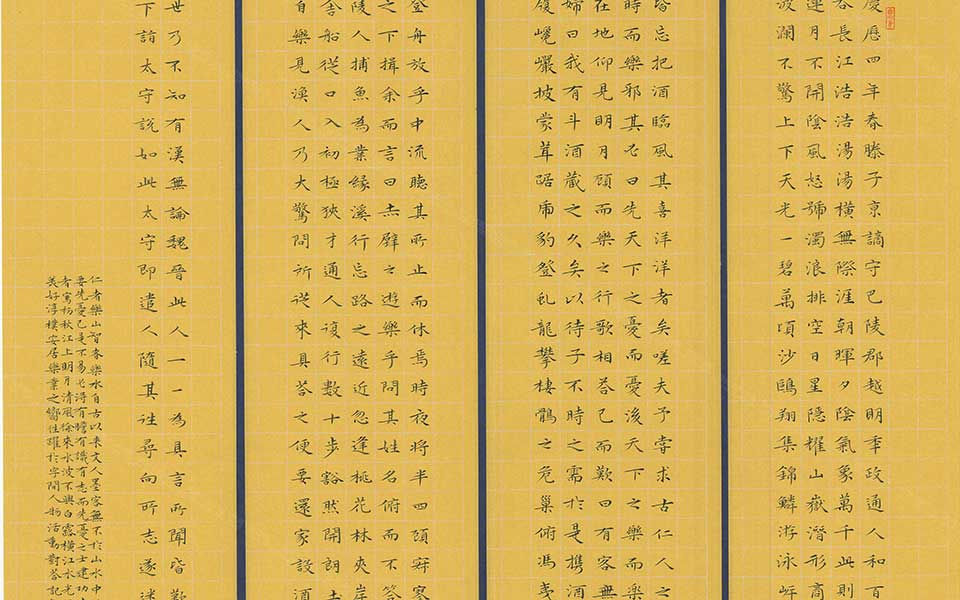 慶曆四年春滕子京謫守巴陵郡越明年政通人和百
吞長江浩浩湯湯橫無際涯朝暉夕陰氣象萬千此則
連月不開陰風怒號濁浪排空日星隱耀山嶽潛形商
波瀾不驚上下天光一碧萬頃沙鷗翔集錦鱗游泳岸
皆忘把酒臨風其喜洋洋者矣嗟夫予嘗求古仁人之
時而樂邪其必曰先天下之憂而憂後天下之樂而樂
在地仰見明月顧而樂之行歌相答已而歎曰有客無
婦曰我有斗酒藏之久矣以待子不時之需於是攜酒
履巉巖披蒙茸踞虎豹登虬龍攀棲鶻之危巢俯馮夷
登舟放乎中流聽其所止而休焉時夜將半四顧寂寥
之下揖余而言曰赤壁之遊樂乎問其姓名俯而不答
陵人捕魚為業緣溪行忘路之遠近忽逢桃花林夾岸
舍船從口入初極狹才通人復行數十步豁然開朗土
自樂見漁人乃大驚問所從來具答之便要還家設酒
世乃不知有漢無論魏晉此人一一為具言所聞皆歎
下詣太守說如此太守即遣人隨其往尋向所志遂迷
仁者樂山智者樂水自古以來文人墨客無不於山水中
要先憂已是不易也得有膽有識有志而先憂之士建功
者寓於秋江上明月清風徐來水波不興白露橫江水光
美好淳樸安居樂業之嚮往躍於字間人物活動對答記